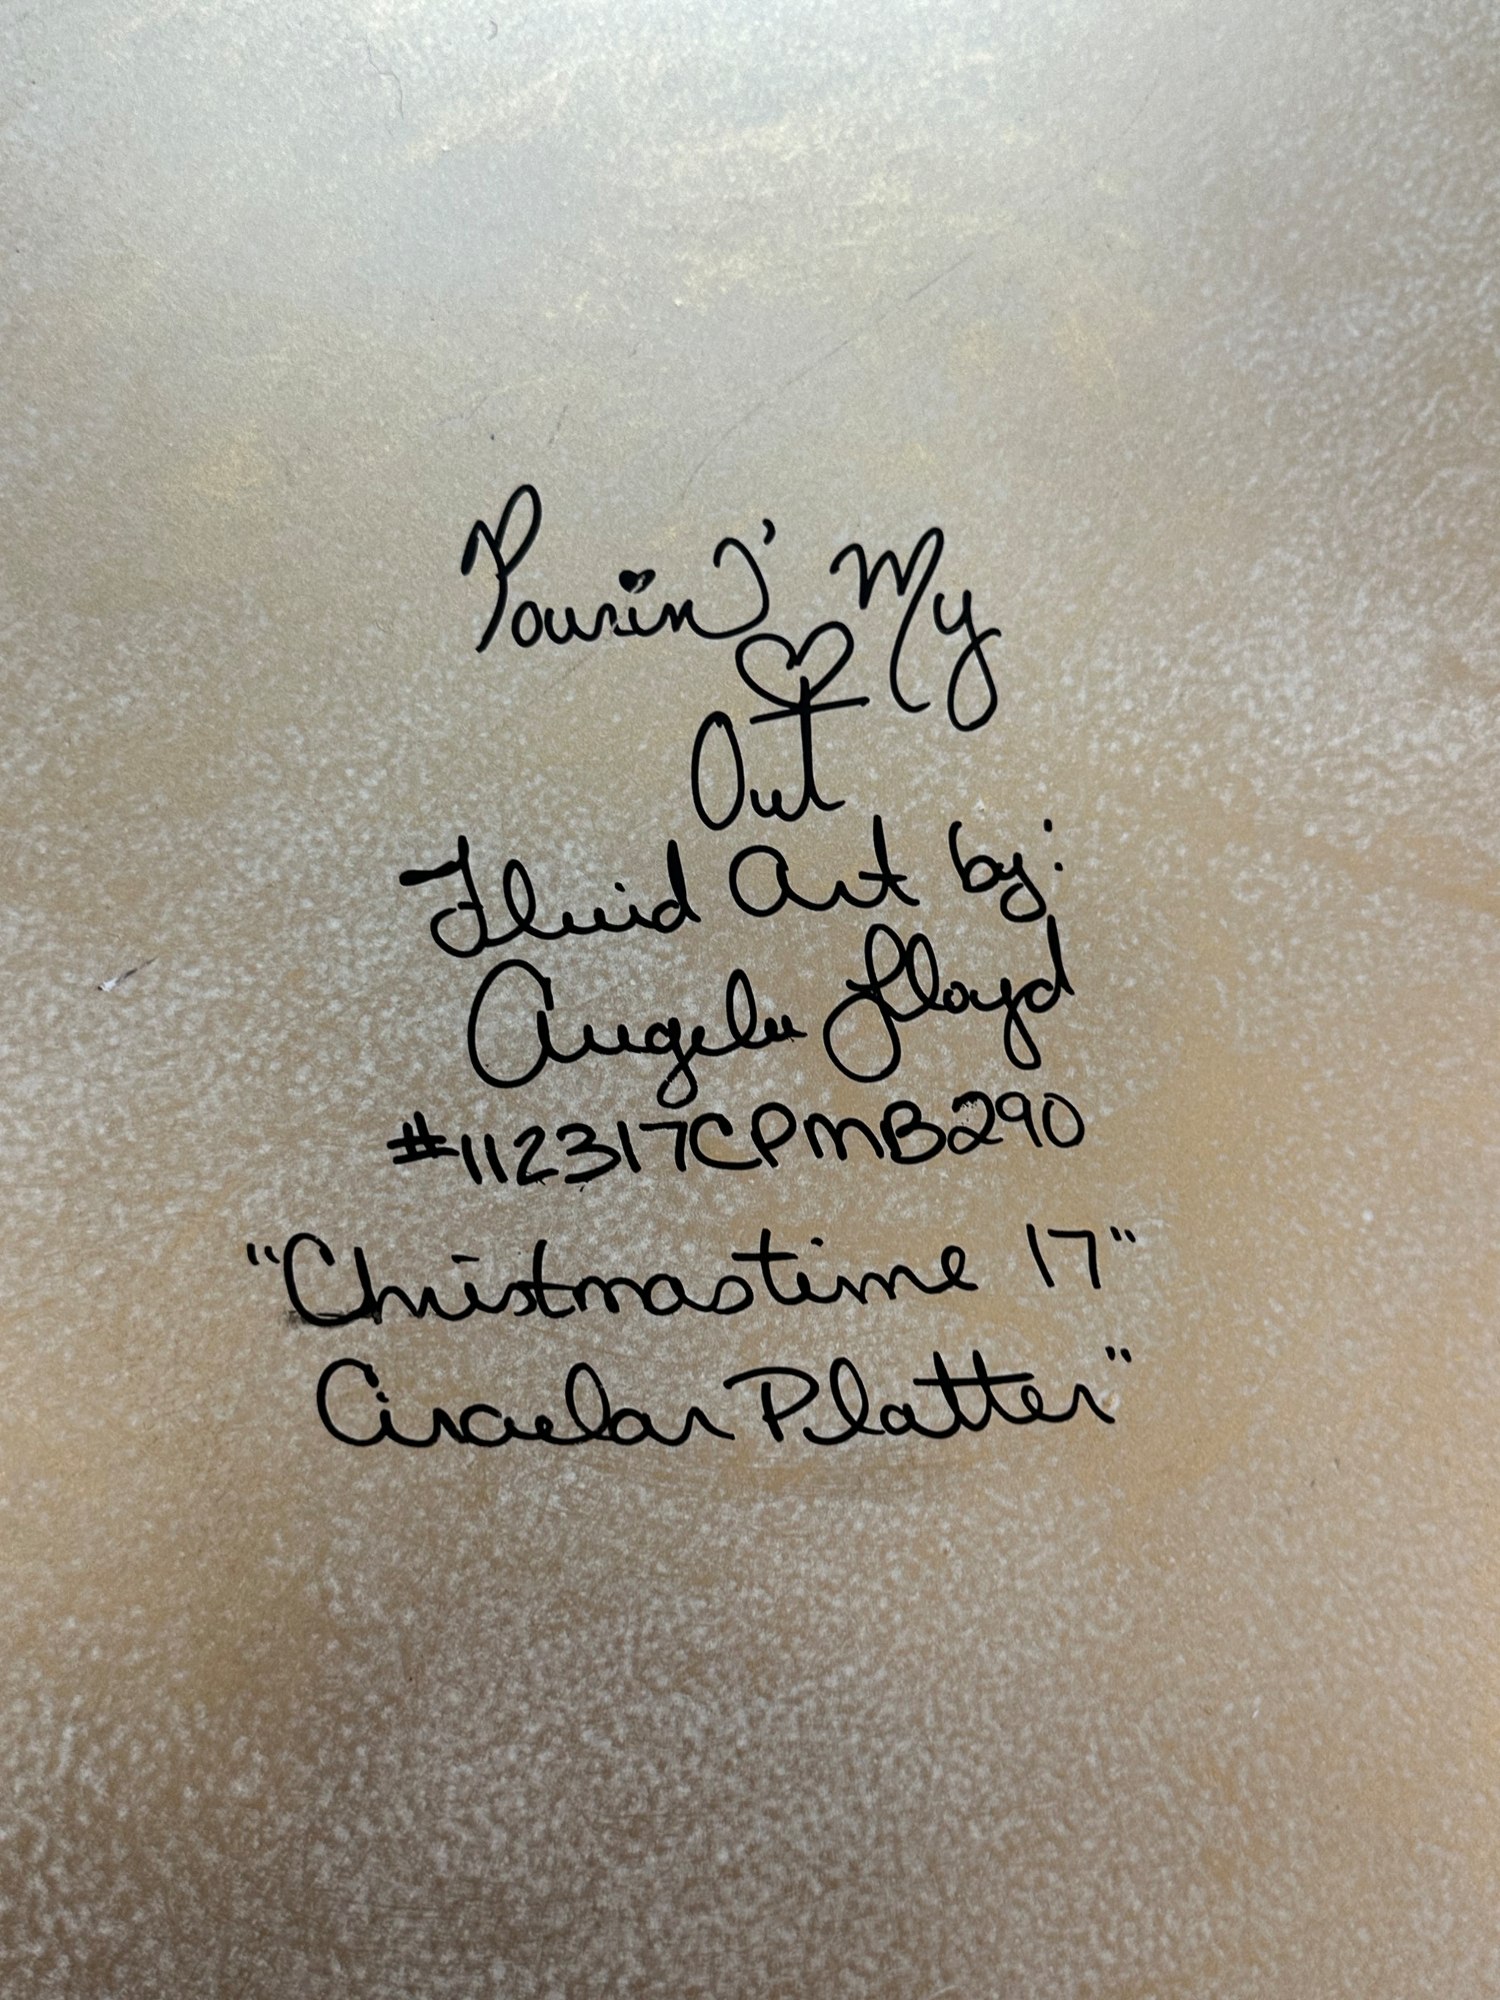 Pourin' My
♡
Out
Fluid Art by:
Angela Lloyd
#112317CPMB290
"Christmastime 17"
Circular Platter"